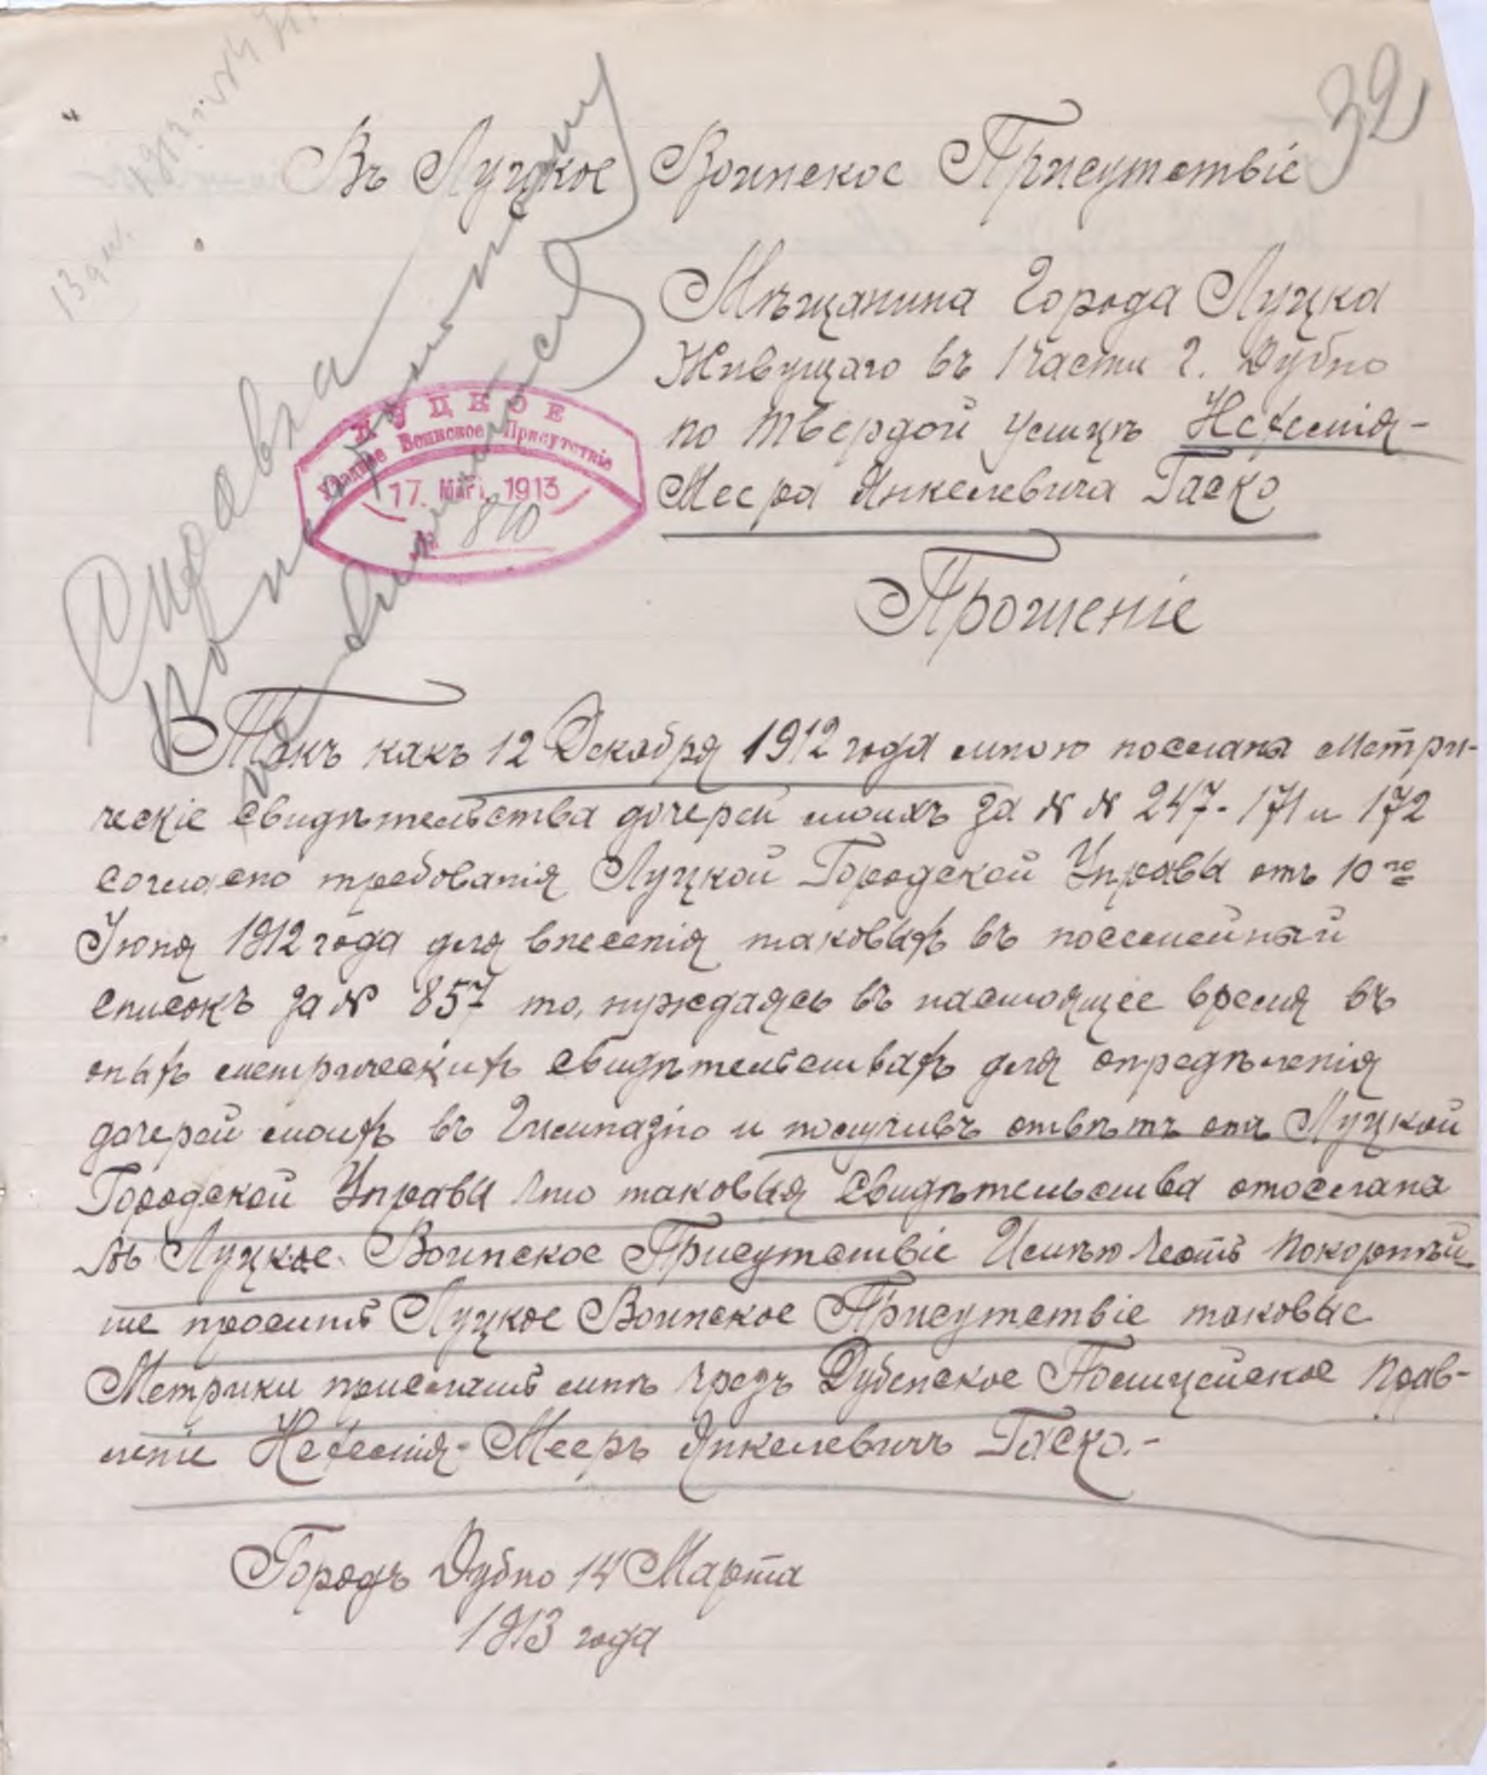 32
Въ Луцкое Воинское Присутствіе
Мѣщанина Города Луцка
Живущаго въ 1 части г. Дубно
по Твердой улицѣ Нехемія-
Меера Янкелевича Гаско
ЛУЦКОЕ
Уѣздное Воинское Присутствіе
17. МАР. 1913
№ 810
Справка
Прошеніе
Такъ какъ 12 Декабря 1912 года мною послана метри-
ческіе свидѣтельства дочерей моихъ за № № 247-171 и 172
согласно требованія Луцкой Городской Управы отъ 10 го
Іюня 1912 года для внесенія таковыхъ въ посемейный
списокъ за № 857 то, нуждаясь въ настоящее время въ
оныхъ метрическихъ свидѣтельствахъ для опредѣленія
дочерей моихъ въ Гимназію и получивъ отвѣтъ отъ Луцкой
Городской Управы что таковыя свидѣтельства отослана
въ Луцкое Воинское Присутствіе Имѣю честь покорнѣй
ше просить Луцкое Воинское Присутствіе таковые
Метрики прислать мнѣ чрезъ Дубенское Полицейское Прав-
леніе Нехемія-Мееръ Янкелевичъ Гаско.-
Городъ Дубно 14 Марта
1913 года